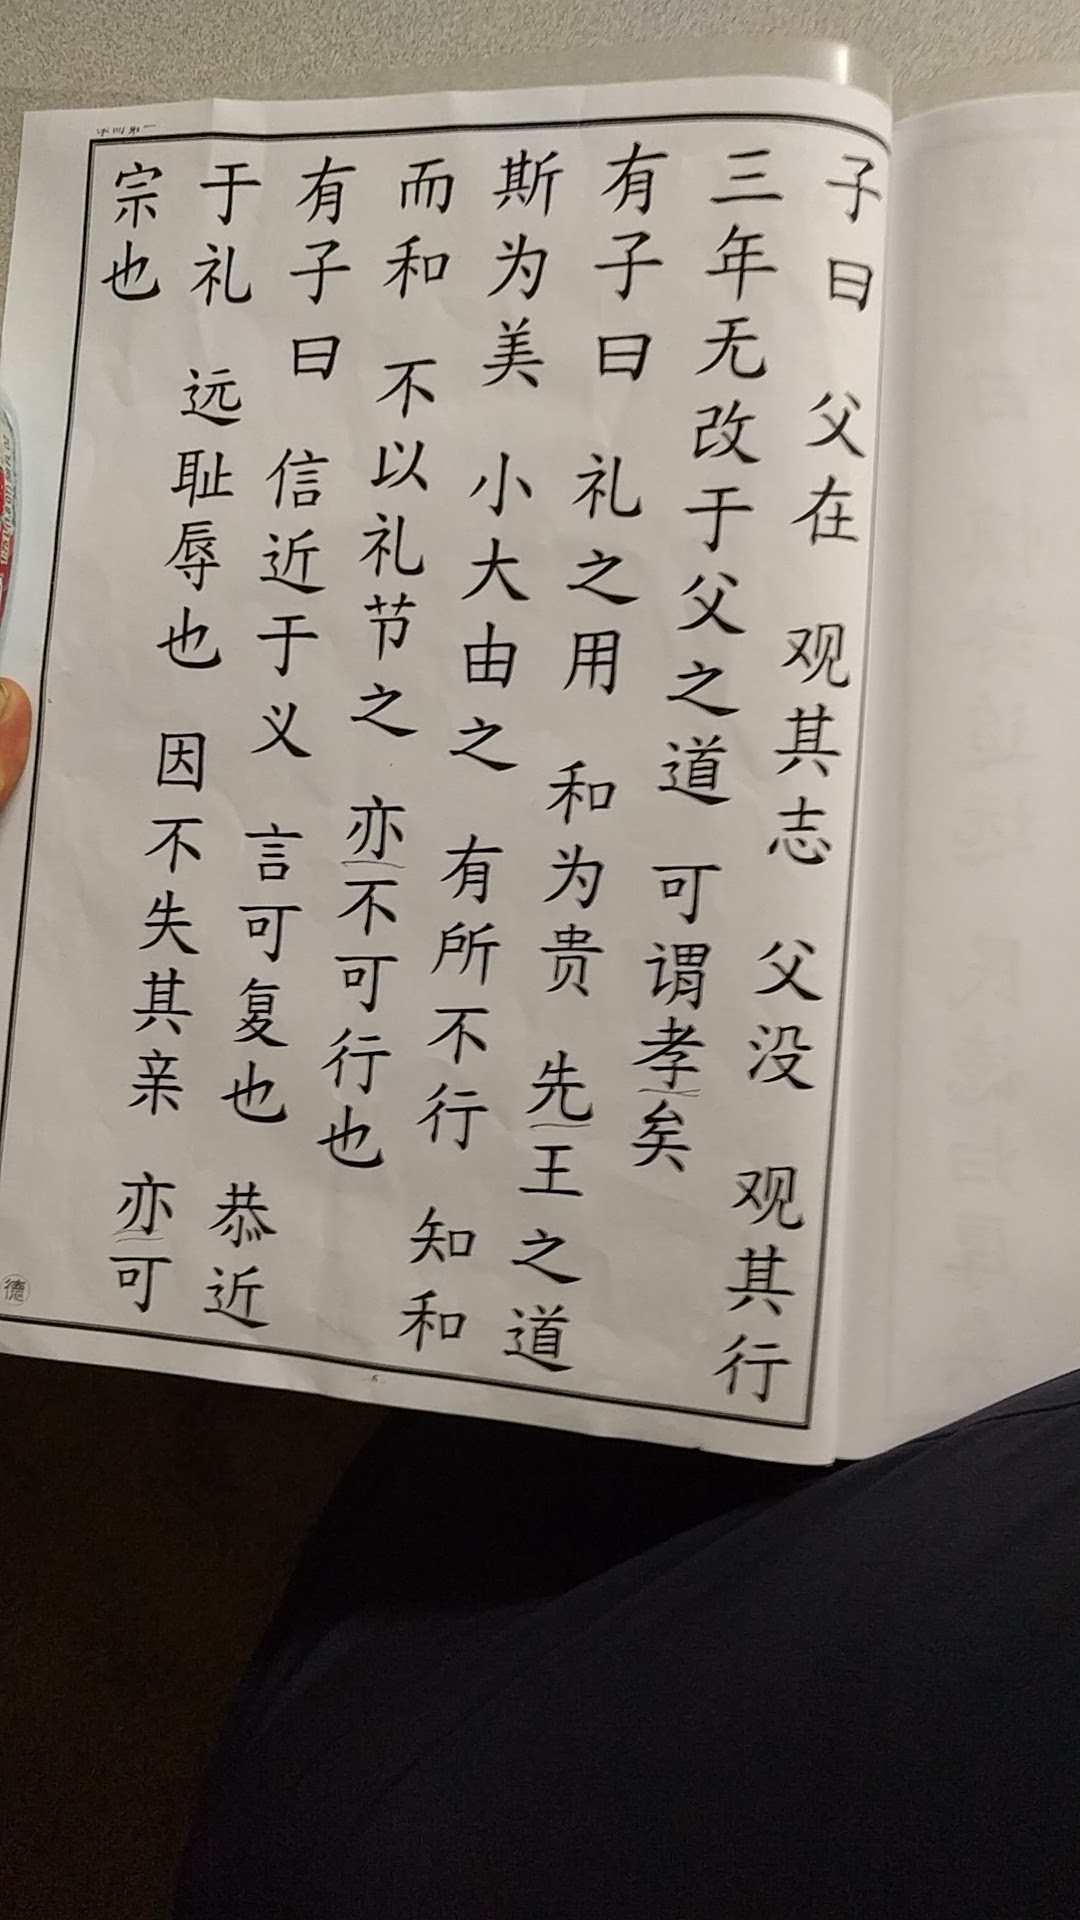 子曰 父在 观其志 父没 观其行
三年无改于父之道 可谓孝矣
有子曰 礼之用 和为贵 先王之道
斯为美 小大由之 有所不行 知和
而和 不以礼节之 亦不可行也
有子曰 信近于义 言可复也 恭近
于礼 远耻辱也 因不失其亲 亦可
宗也
德